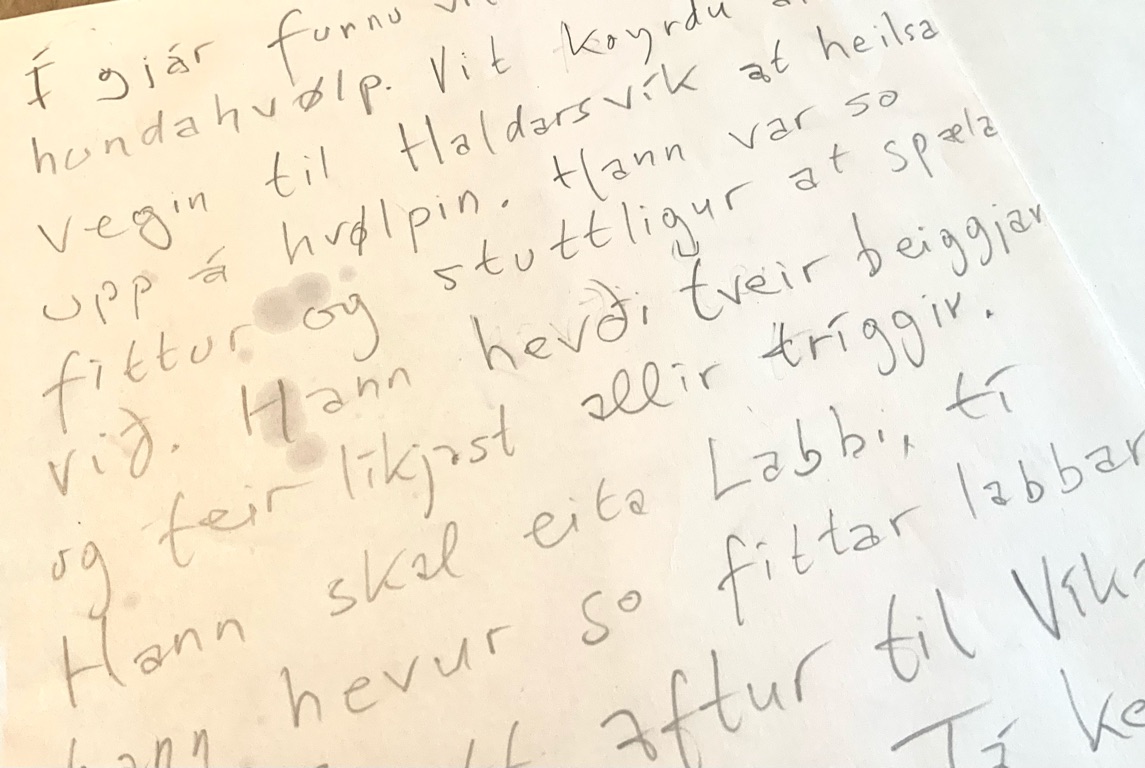 Í gjár funnu
hundahvølp. Vit koyrdu
vegin til Haldarsvík at heilsa
upp á hvølpin. Hann var so
fittur og stuttligur at spæla
við. Hann hevði tveir beiggjar
og teir líkjast allir tríggir.
Hann skal eita Labbi, tí
hann hevur so fittar labbar
aftur til
Tá